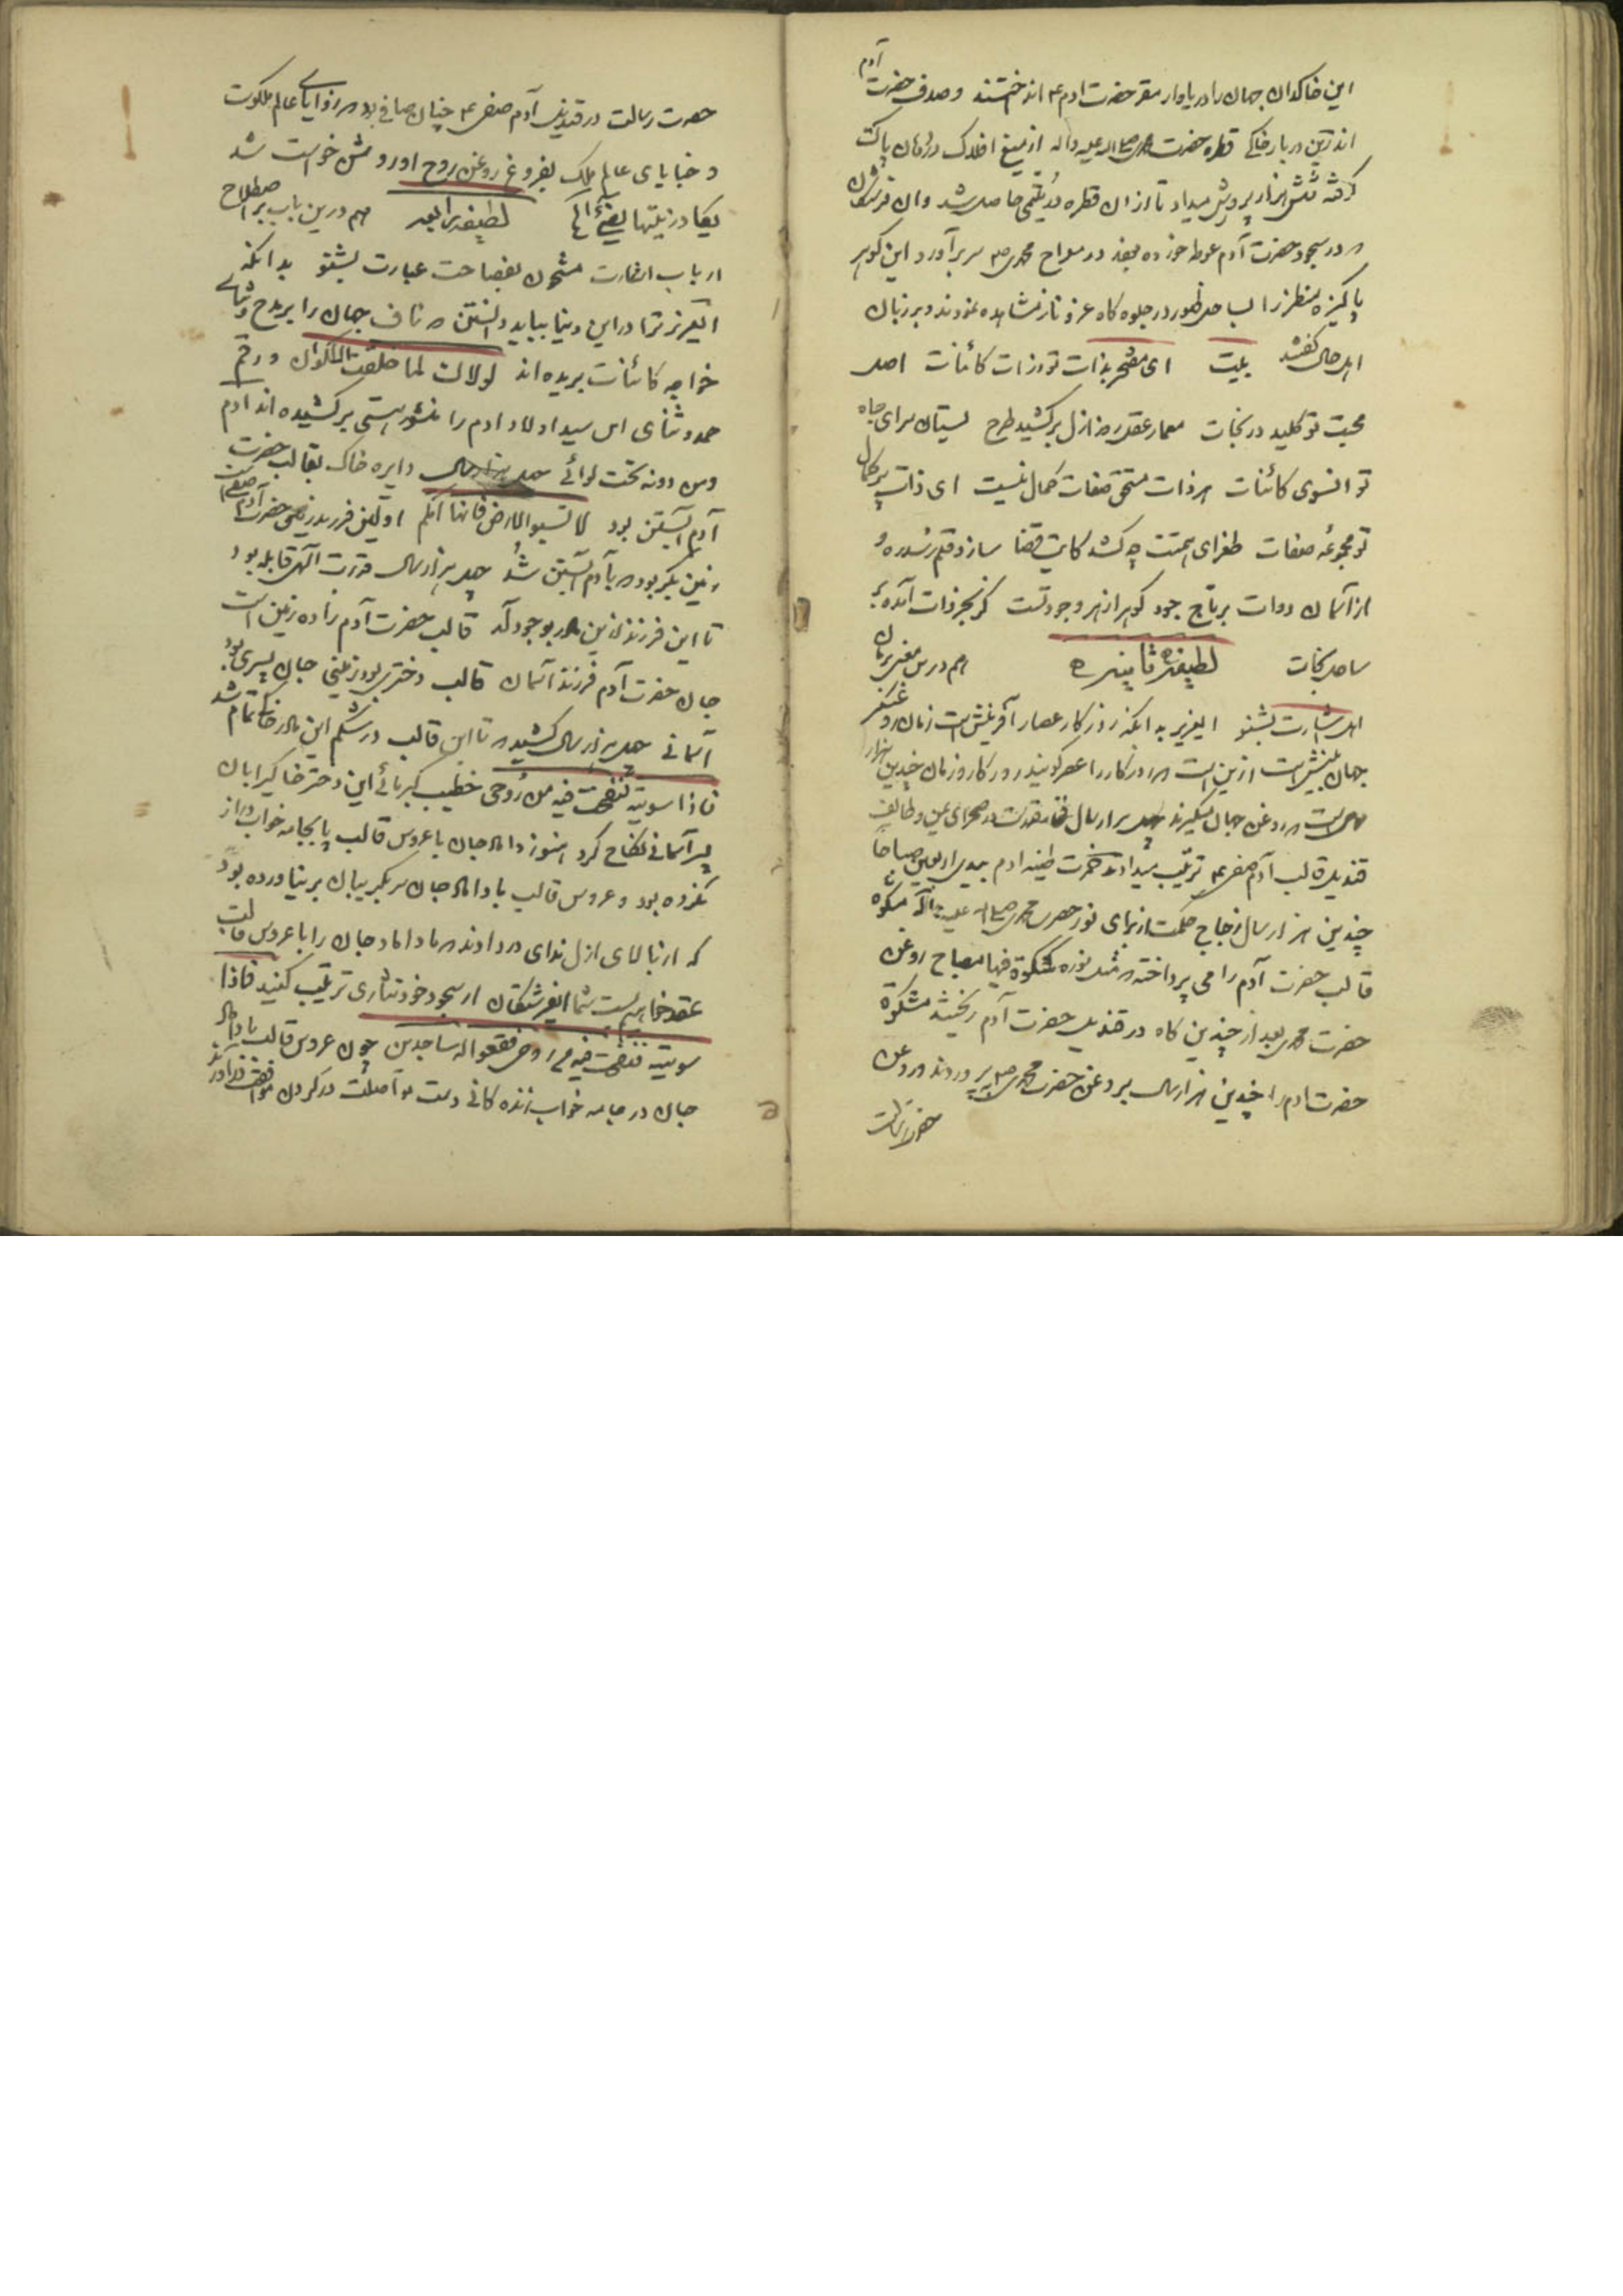 آدم
این خاکدان جهان را دریاوار مقر حضرت ادم ع انداختند و صدف حضرت
اندرین دربار خاکی قطره حضرت محمد صلی الله علیه واله از میغ افلاک در دهان پاکت
گرفته شش هزار پرورش میداد تا از ان قطره در یتیمی حاصل شد وان
در سجود حضرت آدم غوطه خورده بعد در معراج محمدی ص سر برآورد و این گوهر
پاکیزه منظر را بساحل ظهور در جلوه کاه عز و ناز مشاهده نمودند و بر زبان
اهل حال گفتند بیت ای مفتخر بذات تو ذرات کائنات اصل
محبت تو کلید در نجات معمار عقل رضا ازل برکشید طرح بستان سرای جاه
تو انسوی کائنات هر ذات مستحق صفات کمال نیست ای ذات پر کمال
تو مجموعه صفات طغرای همتت چو کشد کاتب قضا سازد قلم ز سدره و
از آسمان دوات بر تاج جود گوهر از بهر وجود تست کز بحر ذات آمده
ساحل نجات لطیفه ثانیه هم درین معنی بزبان
اهل بشارت بشنو ایعزیز بدانکه روزکار عصار آفرینش است زمان و
جهان بینش است ازین است که روزکار را عصر گویند روزکار و زمان چندین هزار
سال است که روغن جهان میگیرند چندین هزار سال قدرت در صحرای عین و طائف
قندیل قالب آدم صفی ع ترتیب میدادند خمرت طینه ادم بیدی اربعین صباحا
چندین هزار سال زجاج حکمت از برای نور حضرت محمدی صلی الله علیه واله مشکوة
قالب حضرت آدم را می پرداختند مثل نوره کمشکوة فیها مصباح روغن
حضرت محمدی بعد از چندین کاه در قندیل حضرت آدم ریختند مشکوة
حضرت ادم را چندین هزار سال بروغن حضرت محمدی ص پروردند روغن
حضرت رسالت
حضرت رسالت در قندیل آدم صفی ع چنان صافی بود که زوایای عالم ملکوت
و خبایای عالم ملک بفروغ روغن روح او روشن خواست شد
یکاد زیتها یضیء لطیفه رابعه هم درین باب بر اصطلاح
ارباب اشارت مشحون بفصاحت عبارت بشنو بدانکه
ایعزیز ترا در این دنیا بباید دانستن که ناف جهان را بمدح و ثنای
خواجه کائنات بریده اند لولاک لما خلقت الاکوان و رقم
حمد و ثنای این سید اولاد ادم را بر منشور هستی برکشیده اند ادم
ومن دونه تحت لوائی چندین هزار سال دایره خاک بقالب حضرت
آدم آبستن بود لا تسبوا الارض فانها امکم اولین فرزند زمین حضرت آدم صفی است
زمین بکر بود که بآدم آبستن شد چندین هزار سال قدرت الهی قابله بود
تا این فرزند ازین مادر بوجود آمد قالب حضرت آدم زاده زمین است
جان حضرت آدم فرزند آسمان قالب دختری بود زمینی جان پسری بود
آسمانی چندین هزار سال کشید که تا این قالب در شکم این مادر خاک تمام شد
فاذا سویته نفخت فیه من روحی خطیب کبریائی این دختر خاکی را بان
پسر آسمانی نکاح کرد هنوز داماد جان با عروس قالب یا بجامه خواب دراز
نکرده بود و عروس قالب با داماد جان سر بگریبان بر نیاورده بود
که از بالای ازل ندای در دادند که ما داماد جان را با عروس قالب
عقد خواهیم بست شما ایفرشتکان از سجود خود نثاری ترتیب کنید فاذا
سویته نفخت فیه من روحی فقعوا له ساجدین چون عروس قالب با داماد
جان در جامه خواب زنده کانی دست مواصلت در کردن موافقت در آوردند